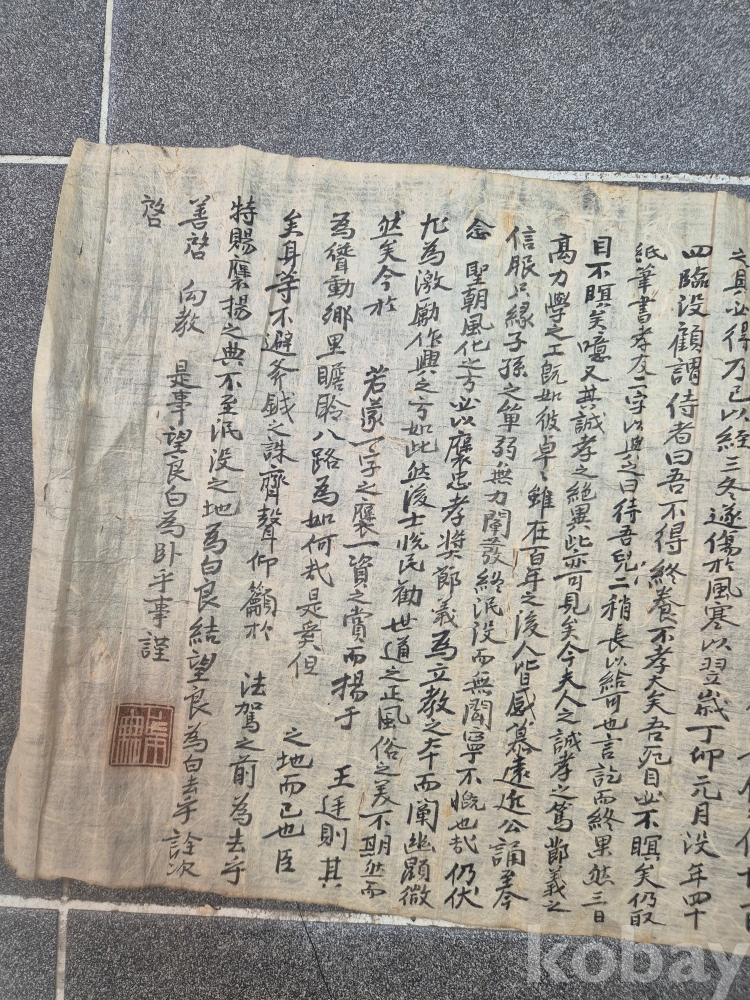 之具必得乃已以經三冬遂傷於風寒以翌歲丁卯元月沒年四十
四臨沒顧謂侍者曰吾不得終養不孝大矣吾死目必不瞑矣仍取
紙筆書孝友二字以與之曰待吾兒二稍長以給可也言訖而終果然三日
目不瞑矣噫又其誠孝之絶異此亦可見矣今夫人之誠孝之篤節義之
高力學之工旣如彼卓〻雖在百年之後人皆感慕遠近公誦至今
信服只緣子孫之單弱無力闡發終泯沒而無聞寧不慨也哉仍伏
念 聖朝風化之方必以褒忠孝獎節義為立教之本而闡幽顯微
尤為激勵作興之方如此然後士悅民勸世道之正風俗之美不期然而
然矣今於 若蒙一字之褒一資之賞而揚于 王廷則其
為聳動鄕里瞻聆八路為如何哉是奚但 之地而已也臣
矣身等不避斧鉞之誅齊聲仰籲於 法駕之前為去乎
特賜褒揚之典不至泯沒之地為白良結望良為白去乎詮次
善啓 向敎 是事望良白為卧乎事謹
啓
kobay